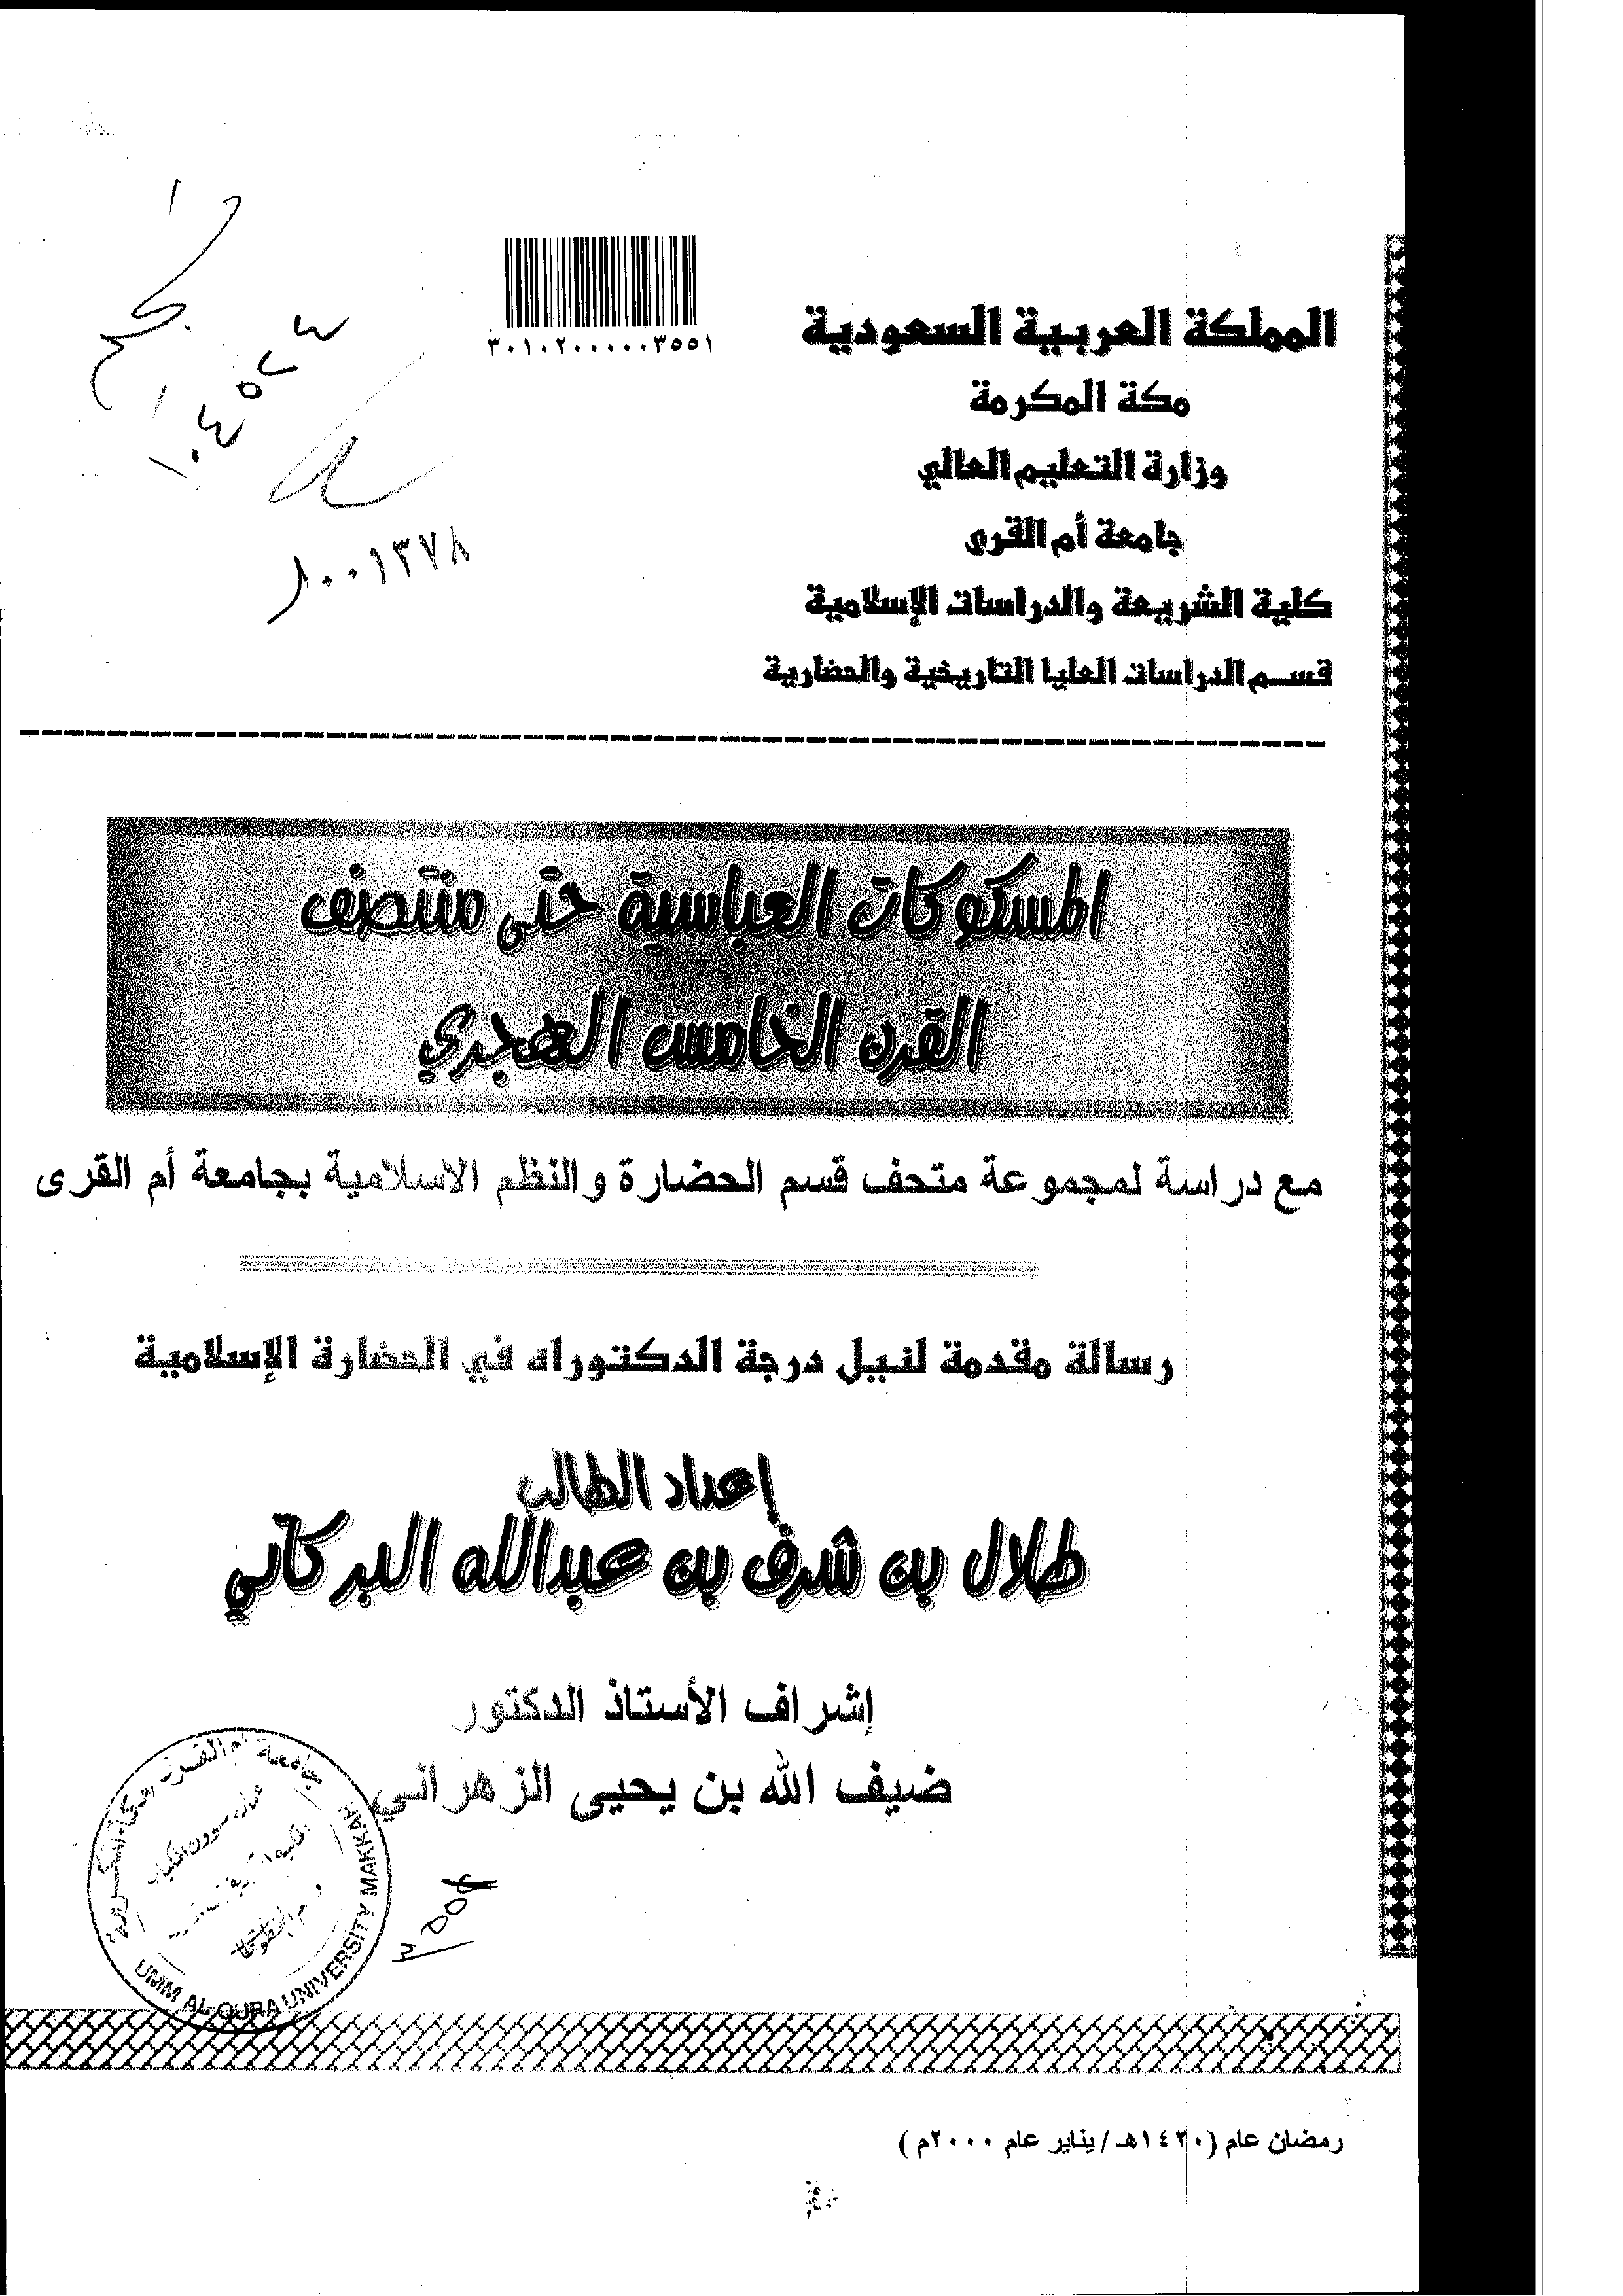 المملكة العربية السعودية
مكة المكرمة
وزارة التعليم العالي
جامعة أم القرى
كلية الشريعة والدراسات الإسلامية
قســم الدراسات العليا التاريخية والحضارية
٣٠١٠٢٠٠٠٠٠٣٥٥١
٨٠٠١٣٧٨
المسكوكات العباسية حتى منتصف
القرن الخامس الهجري
مع دراسة لمجموعة متحف قسم الحضارة والنظم الاسلامية بجامعة أم القرى
رسالة مقدمة لنيل درجة الدكتوراه في الحضارة الإسلامية
إعداد الطالب
طلال بن شرف بن عبدالله البركاتي
إشراف الأستاذ الدكتور
ضيف الله بن يحيى الزهراني
جامعة أم القرى مكة المكرمة
UMM AL-QURA UNIVERSITY MAKKAH
رمضان عام (١٤٢٠هـ/يناير عام ٢٠٠٠م)